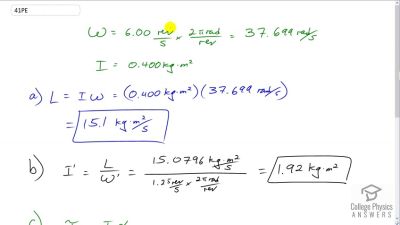 41PE
ω = 6.00 rev/s × 2π rad/rev = 37.699 rad/s
I = 0.400 kg·m²
a) L = I ω = (0.400 kg·m²)(37.699 rad/s)
= 15.1 kg·m²/s
b) I' = L/ω' = 15.0796 kg·m²/s / 1.25 rev/s × 2π rad/rev = 1.92 kg·m²
College Physics
ANSWERS